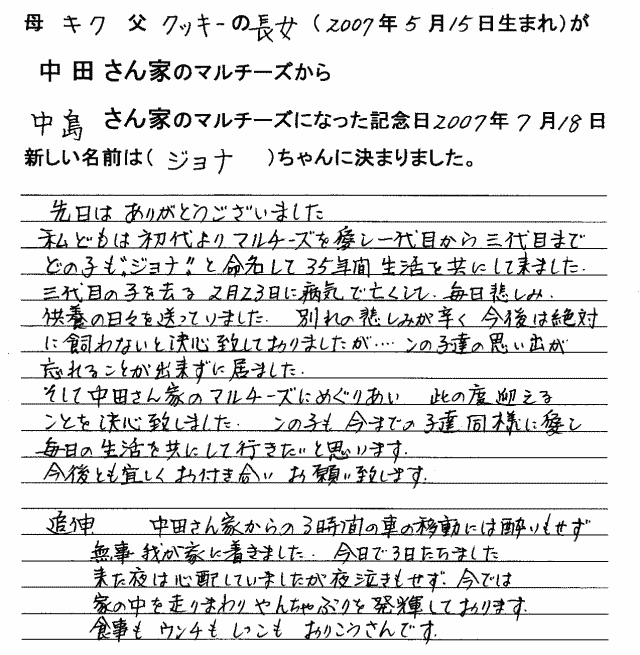 母 キク 父 クッキーの長女(2007年5月15日生まれ)が
中田さん家のマルチーズから
中島 さん家のマルチーズになった記念日2007年7月18日
新しい名前は(ジョナ )ちゃんに決まりました。
先日は ありがとうございました
私どもは初代よりマルチーズを愛し一代目から三代目まで
どの子も"ジョナ"と命名して35年間生活を共にして来ました.
三代目の子を去る2月23日に病気で亡くして、毎日悲しみ、
供養の日々を送っていました. 別れの悲しみが辛く今後は絶対
に飼わないと決心致しておりましたが....この子達の思い出が
忘れることが出来ずに居ました.
そして中田さん家のマルチーズにめぐりあい 此の度迎える
ことを決心致しました. この子も今までの子達同様に愛し
毎日の生活を共にして行きたいと思います.
今後とも宜しくお付き合いお願い致します.
追伸 中田さん家からの3時間の車の移動には酔いもせず
無事我が家に着きました. 今日で3日たちました
来た夜は心配していましたが夜泣きもせず.今では
家の中を走りまわりやんちゃぶりを発揮しております.
食事もウンチもしっこもおりこうさんです.